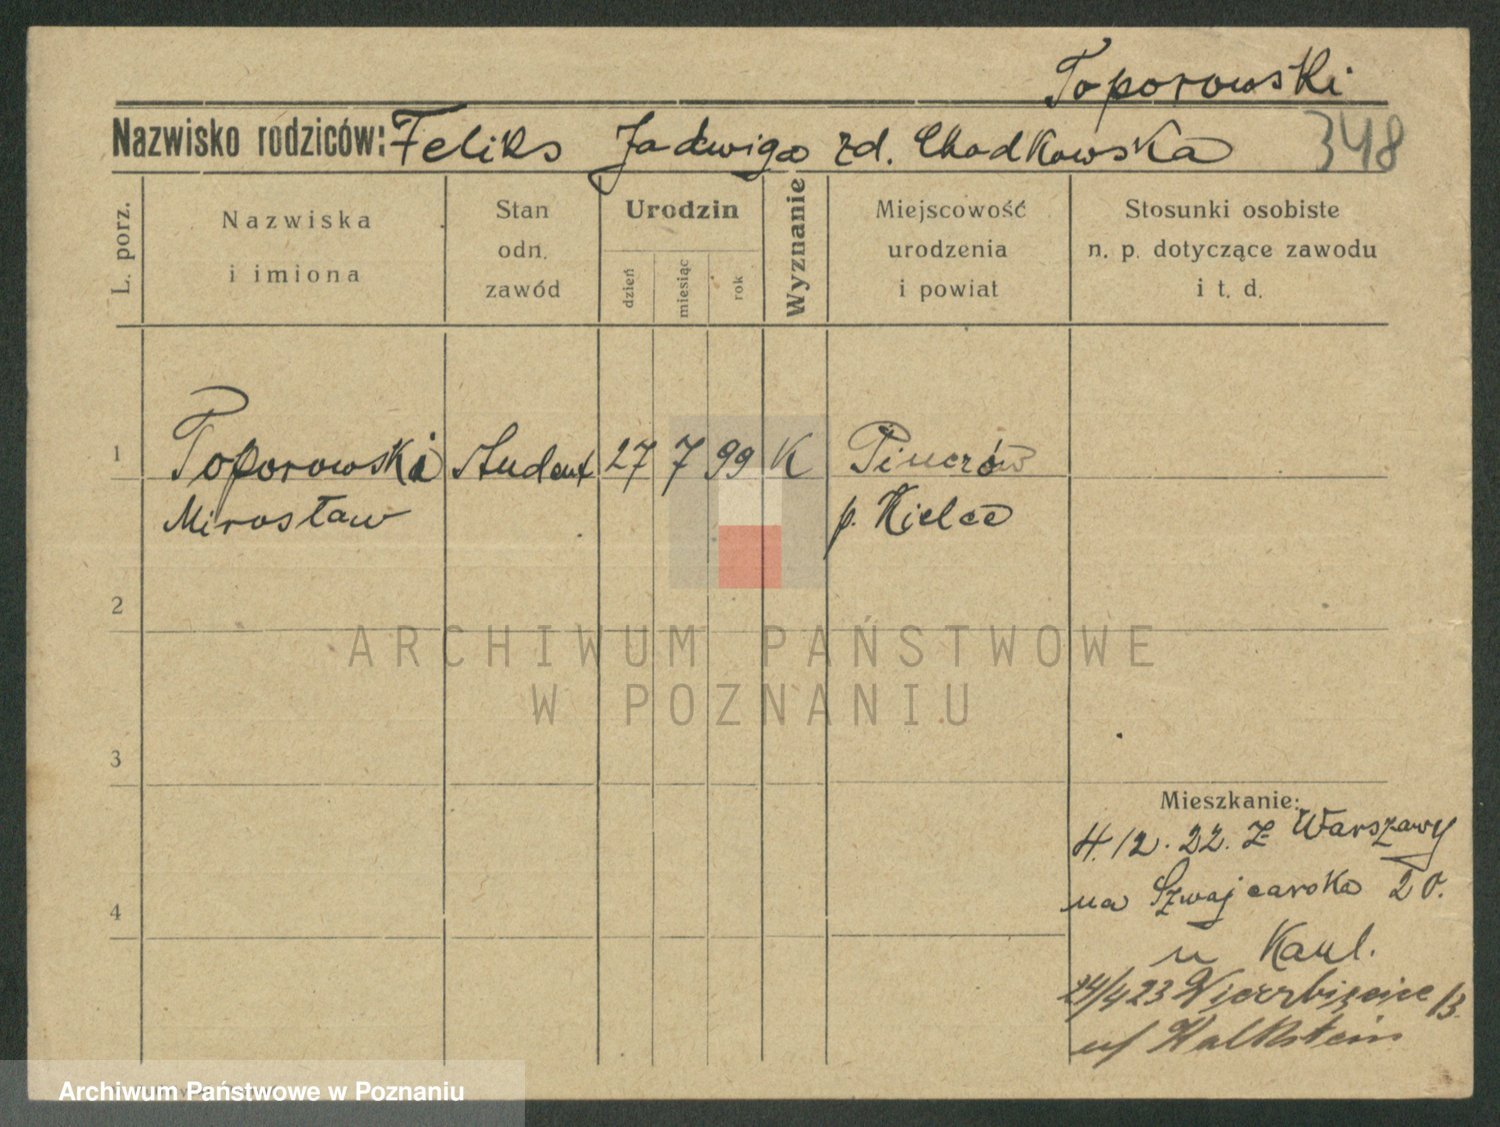 Toporowski
Nazwisko rodziców: Feliks Jadwiga zd. Chodkowska 348
L. porz.
Nazwiska
i imiona
Stan
odn.
zawód
Urodzin
dzień
miesiąc
rok
Wyznanie
Miejscowość
urodzenia
i powiat
Stosunki osobiste
n. p. dotyczące zawodu
i t. d.
1 Toporowski Student 27 7 99 K Pinczów
Mirosław p. Kielce
2
ARCHIWUM PAŃSTWOWE
W POZNANIU
3
Mieszkanie:
4.12.22. z Warszawy
na Szwajcarska 20.
4
u Kaul.
24/4 23 Wierzbięcice 13.
u/ Kalkstein
Archiwum Państwowe w Poznaniu